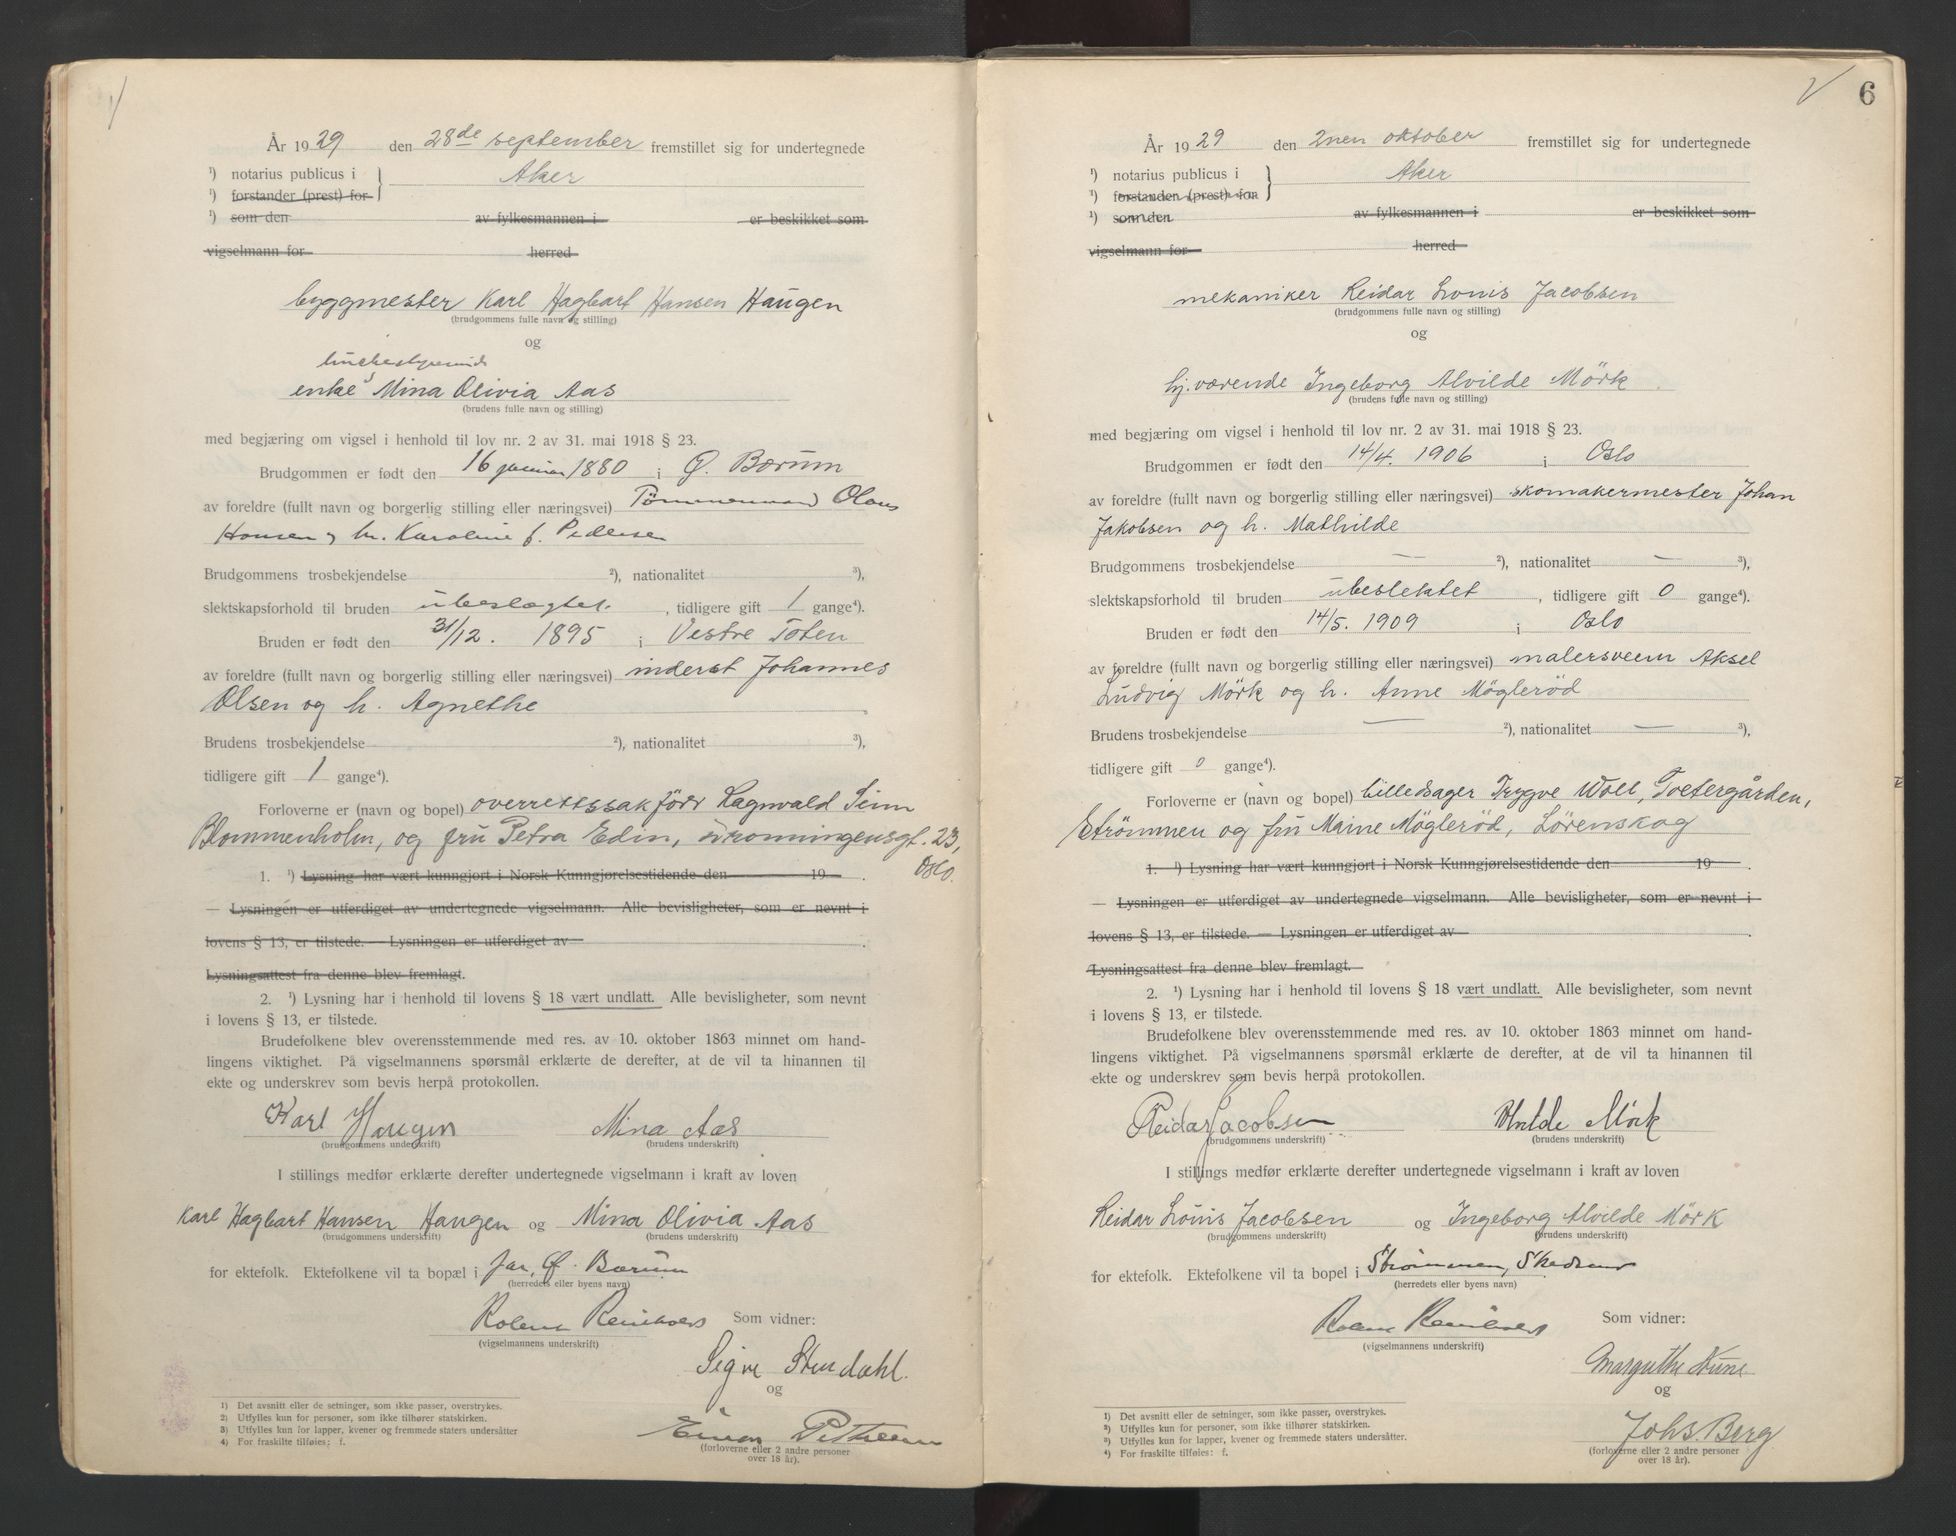 År 1929 den 28de september fremstillet sig for undertegnede
¹) notarius publicus i Aker
¹) forstander (prest) for
¹) som den av fylkesmannen i er beskikket som
vigselmann for herred
byggmester Karl Hagbart Hansen Haugen
(brudgommens fulle navn og stilling)
og
enke Mina Olivia Aas
(brudens fulle navn og stilling)
med begjæring om vigsel i henhold til lov nr. 2 av 31. mai 1918 § 23.
Brudgommen er født den 16 januar 1880 i Ø. Bærum
av foreldre (fullt navn og borgerlig stilling eller næringsvei) Tømmermand Olaus
Hansen og h. Karoline f. Pedersen
Brudgommens trosbekjendelse ²), nationalitet ³),
slektskapsforhold til bruden ubeslægtet. , tidligere gift 1 gange⁴).
Bruden er født den 31/12. 1895 i Vestre Toten
av foreldre (fullt navn og borgerlig stilling eller næringsvei) inderst Johannes
Olsen og h. Agnethe
Brudens trosbekjendelse ²), nationalitet ³),
tidligere gift 1 gange⁴).
Forloverne er (navn og bopel) overrettssakfører Ragnvald
Blommenholm, og fru Petra Edin, Dronningensgt. 23,
Oslo.
1. ¹) Lysning har vært kunngjort i Norsk Kunngjørelsestidende den 19 .
— Lysningen er utferdiget av undertegnede vigselmann. Alle bevisligheter, som er nevnt i
lovens § 13, er tilstede. — Lysningen er utferdiget av .
Lysningsattest fra denne blev fremlagt.
2. ¹) Lysning har i henhold til lovens § 18 vært undlatt. Alle bevisligheter, som nevnt
i lovens § 13, er tilstede.
Brudefolkene blev overensstemmende med res. av 10. oktober 1863 minnet om hand-
lingens viktighet. På vigselmannens spørsmål erklærte de derefter, at de vil ta hinannen til
ekte og underskrev som bevis herpå protokollen.
Karl Haugen Mina Aas
(brudgommens underskrift) (brudens underskrift)
I stillings medfør erklærte derefter undertegnede vigselmann i kraft av loven
Karl Hagbart Hansen Haugen og Mina Olivia Aas
(brudgommens underskrift) (brudens underskrift)
for ektefolk. Ektefolkene vil ta bopæl i Jar, Ø. Bærum
(herredets eller byens navn)
Som vidner:
(vigselmannens underskrift)
Sigve Stendahl.
og
Einar
(forloverne eller 2 andre personer
over 18 år).
1) Det avsnitt eller de setninger, som ikke passer, overstrykes.
2) Utfylles kun for personer, som ikke tilhører statskirken.
3) Utfylles kun for lapper, kvener og fremmede staters undersåtter
4) For fraskilte tilføies: f.
6
År 1929 den 2nen oktober fremstillet sig for undertegnede
¹) notarius publicus i Aker
¹) forstander (prest) for
¹) som den av fylkesmannen i er beskikket som
vigselmann for herred
mekaniker Reidar Louis Jacobsen
(brudgommens fulle navn og stilling)
og
hj.værende Ingeborg Alvilde Mörk
(brudens fulle navn og stilling)
med begjæring om vigsel i henhold til lov nr. 2 av 31. mai 1918 § 23.
Brudgommen er født den 14/4. 1906 i Oslo
av foreldre (fullt navn og borgerlig stilling eller næringsvei) skomakermester Johan
Jakobsen og h. Mathilde
Brudgommens trosbekjendelse — ²), nationalitet — ³),
slektskapsforhold til bruden ubeslektet , tidligere gift 0 gange⁴).
Bruden er født den 14/5. 1909 i Oslo
av foreldre (fullt navn og borgerlig stilling eller næringsvei) malersvenn Aksel
Ludvig Mörk og h. Anne Möglerød
Brudens trosbekjendelse — ²), nationalitet — ³),
tidligere gift 0 gange⁴).
Forloverne er (navn og bopel) billedsager Trygve Woll, Tvetergården,
Strömmen og fru Maine Möglerød, Lørenskog
1. ¹) Lysning har vært kunngjort i Norsk Kunngjørelsestidende den 19 .
— Lysningen er utferdiget av undertegnede vigselmann. Alle bevisligheter, som er nevnt i
lovens § 13, er tilstede. — Lysningen er utferdiget av .
Lysningsattest fra denne blev fremlagt.
2. ¹) Lysning har i henhold til lovens § 18 vært undlatt. Alle bevisligheter, som nevnt
i lovens § 13, er tilstede.
Brudefolkene blev overensstemmende med res. av 10. oktober 1863 minnet om hand-
lingens viktighet. På vigselmannens spørsmål erklærte de derefter, at de vil ta hinannen til
ekte og underskrev som bevis herpå protokollen.
Reidar Jacobsen Alvilde Mörk
(brudgommens underskrift) (brudens underskrift)
I stillings medfør erklærte derefter undertegnede vigselmann i kraft av loven
Reidar Louis Jacobsen og Ingeborg Alvilde Mörk
(brudgommens underskrift) (brudens underskrift)
for ektefolk. Ektefolkene vil ta bopel i Strømmen, Skedsmo
(herredets eller byens navn)
Som vidner:
(vigselmannens underskrift)
Margrethe
og
Johs. Berg
(forloverne eller 2 andre personer
over 18 år).
¹) Det avsnitt eller de setninger, som ikke passer, overstrykes.
²) Utfylles kun for personer, som ikke tilhører statskirken.
³) Utfylles kun for lapper, kvener og fremmede staters undersåtter.
⁴) For fraskilte tilføies: f.